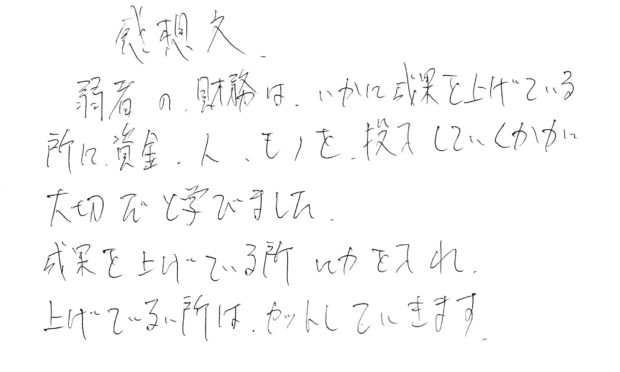 感想文
弱者の財務は、いかに成果を上げている
所に資金、人、モノを、投入していくかが
大切だと学びました。
成果を上げている所に力を入れ、
上げていない所は、カットしていきます。